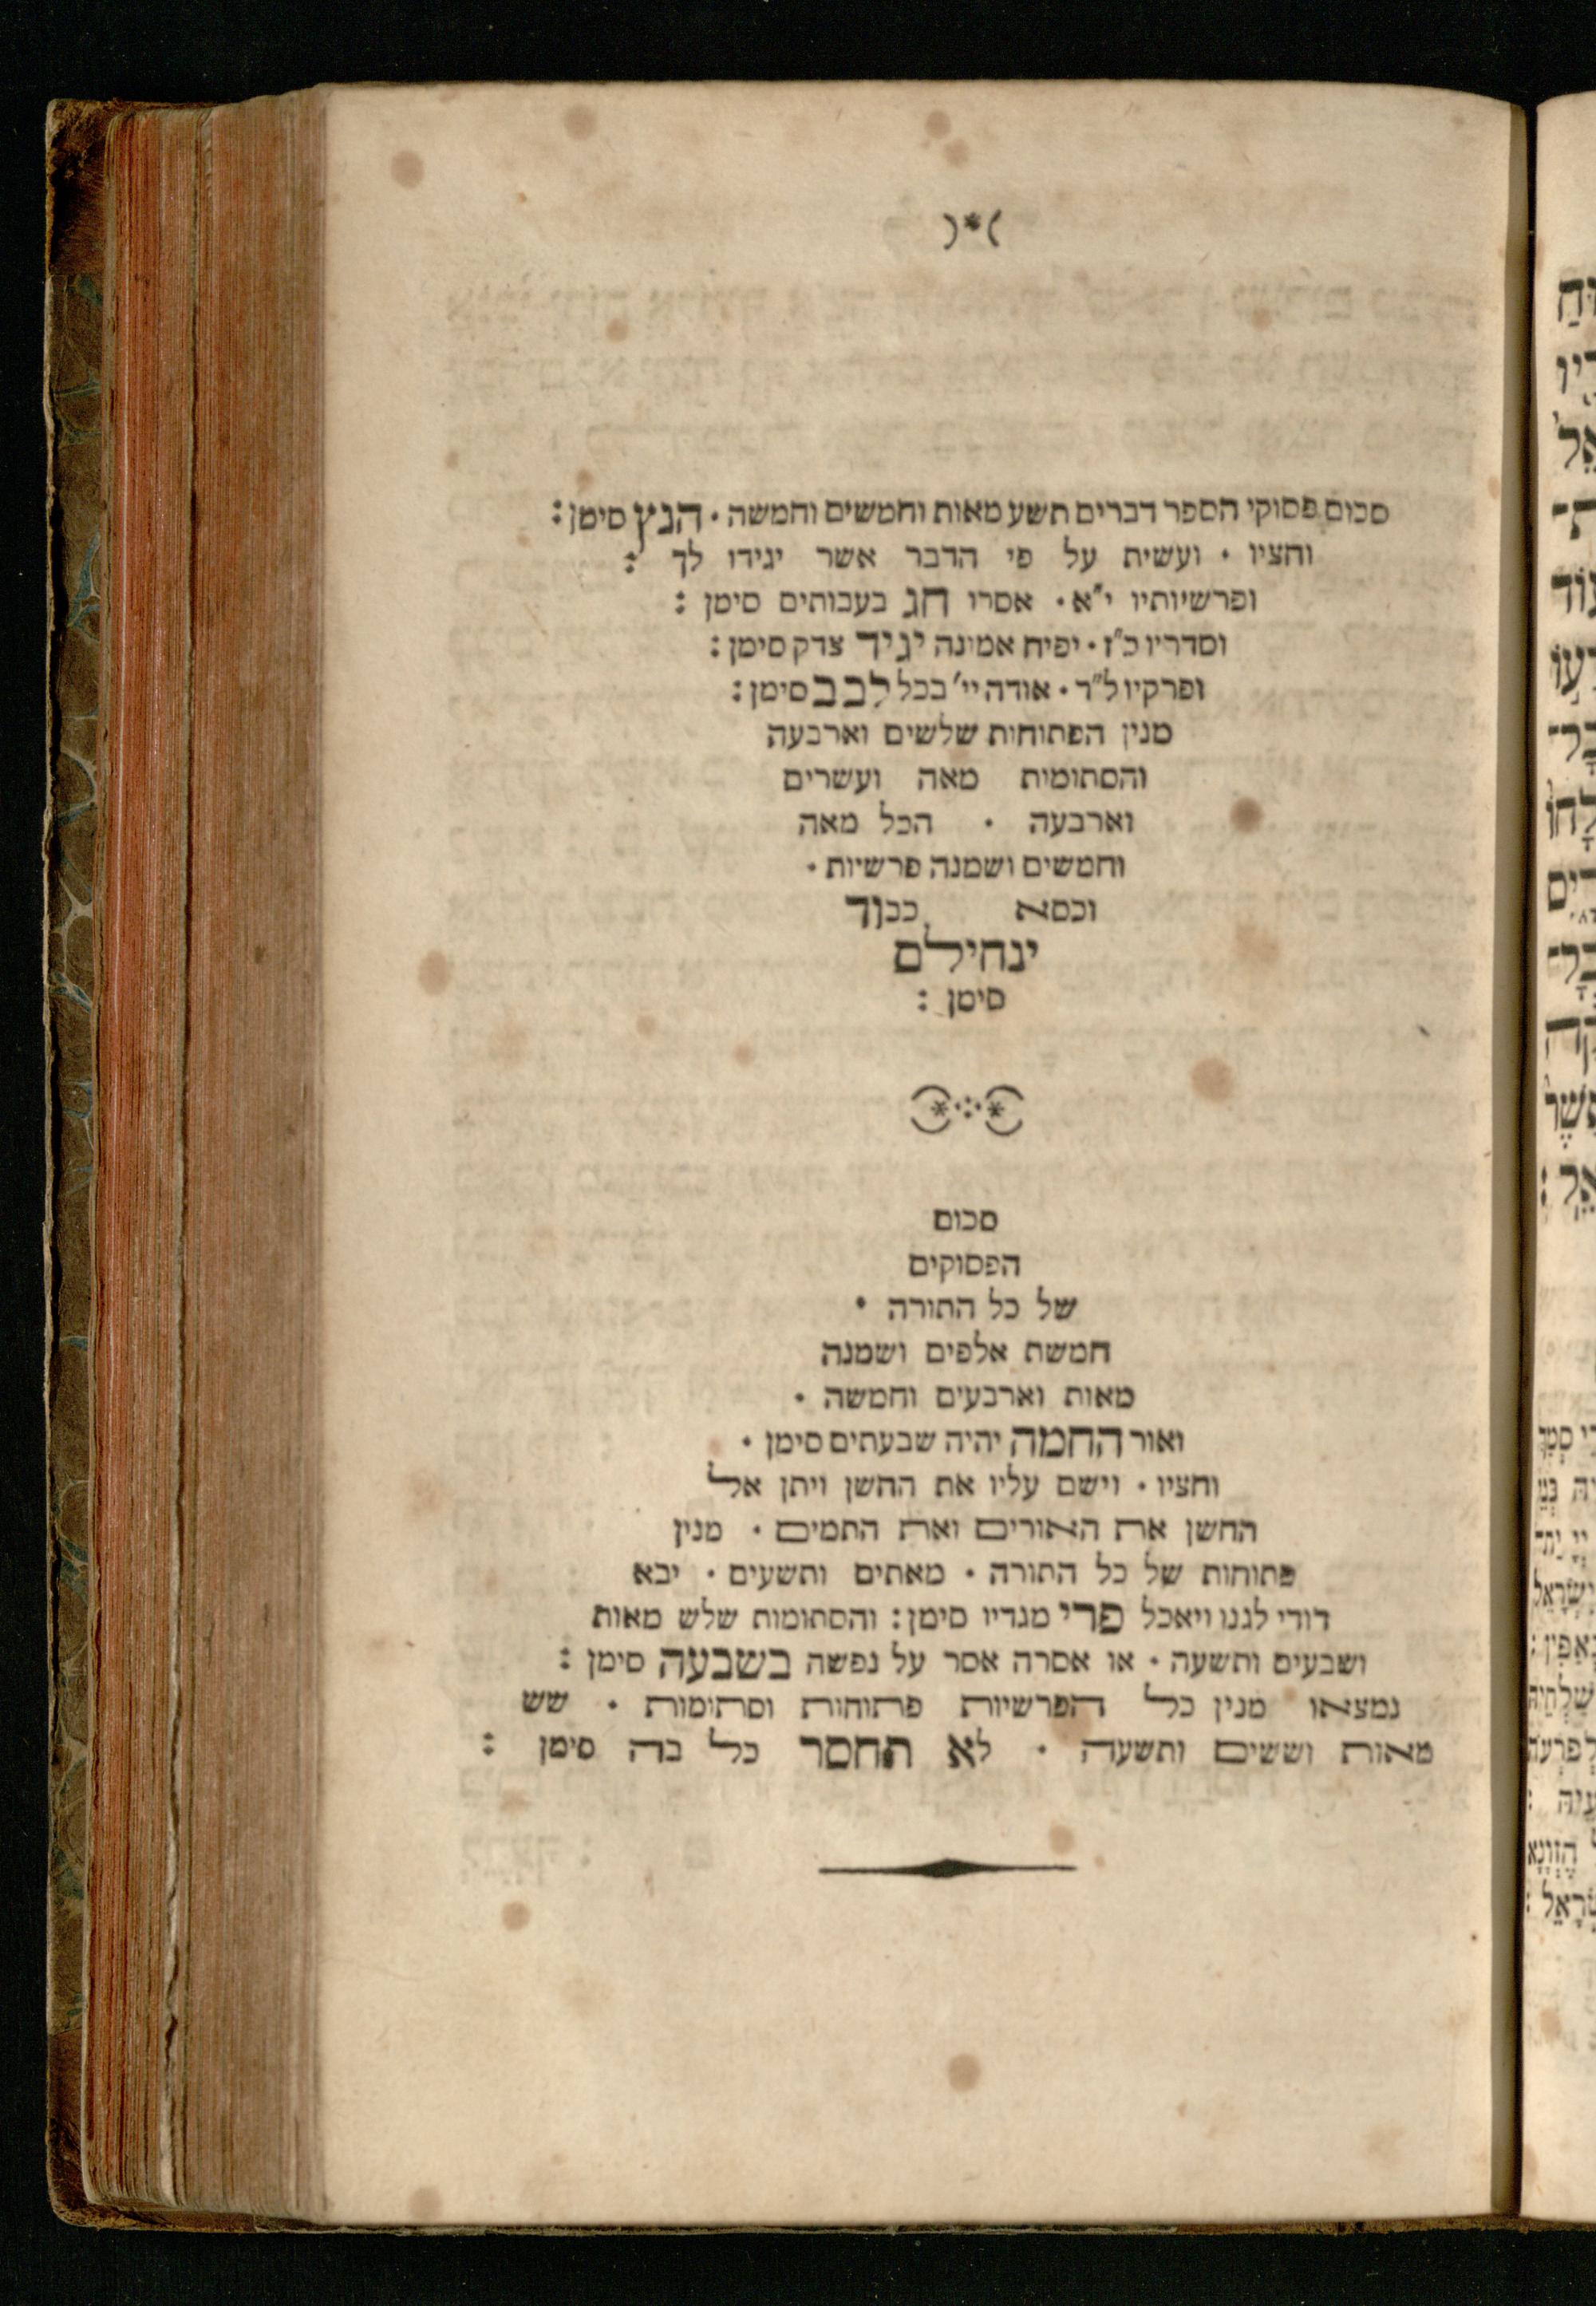 סכום פסוקי הספר דברים תשע מאות וחמשים וחמשה · הנץ סימן :
וחציו · ועשית על פי הדבר אשר יגידו לך :
ופרשיותיו י"א · אסרו חג בעבותים סימן :
וסדריו כ"ז · יפיח אמונה יגיד צדק סימן :
ופרקיו ל"ד · אודה יי' בכל לבב סימן :
מנין הפתוחות שלשים וארבעה
והסתומית מאה ועשרים
וארבעה · הכל מאה
וחמשים ושמנה פרשיות ·
וכסא כבוד
ינחילם
סימן :
סכום
הפסוקים
של כל התורה ·
חמשת אלפים ושמנה
מאות וארבעים וחמשה ·
ואור החמה יהיה שבעתים סימן ·
וחציו · וישם עליו את החשן ויתן אל
החשן את האורים ואת התמים · מנין
פתוחות של כל התורה · מאתים ותשעים · יבא
דודי לגנו ויאכל פרי מגדיו סימן : והסתומות שלש מאות
ושבעים ותשעה · או אסרה אסר על נפשה בשבעה סימן :
נמצאו מנין כל הפרשיות פתוחות וסתומות · שש
מאות וששים ותשעה · לא תחסר כל בה סימן :